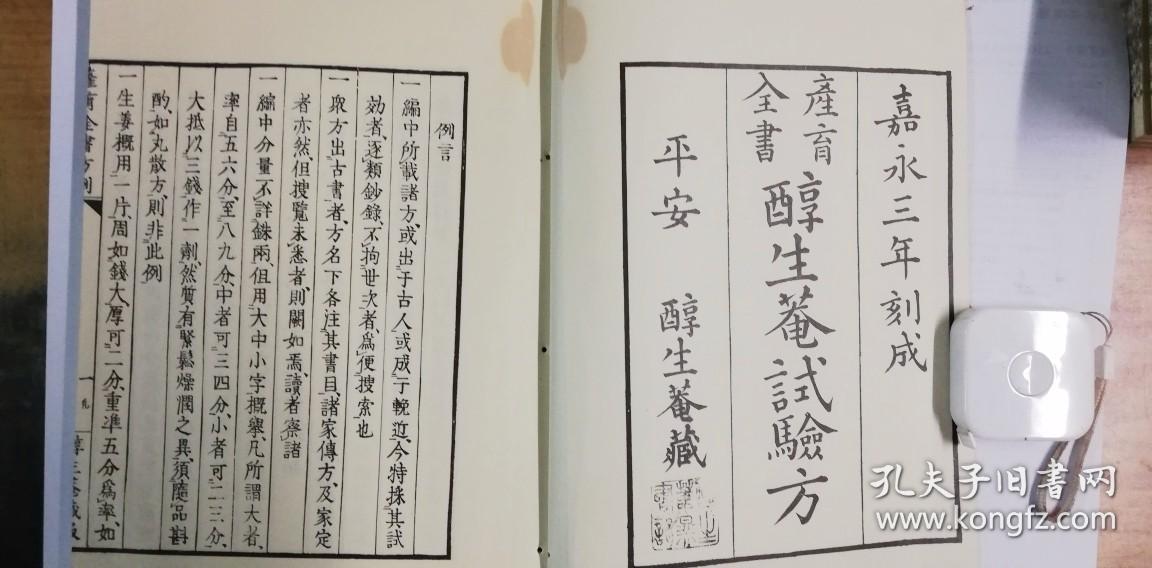 嘉永三年刻成
產育
全書
醇生菴試驗方
平安 醇生菴藏
例言
一編中所載諸方、或出于古人或成于輓近、今特採其試
効者、逐類鈔錄、不拘世次者、爲便搜索也
一衆方出古書者、方名下各注其書目、諸家傳方、及家定
者亦然、但搜覽未悉者、則闕如焉、讀者察諸
一編中分量不詳銖兩、但用大中小字概擧、凡所謂大者、
率自五六分、至八九分、中者可三四分、小者可二三分、
大抵以三錢作一劑、然質有緊鬆燥潤之異、須隨品斟
酌、如丸散方、則非此例
一生姜概用一片、周如錢大、厚可二分、重準五分爲率、如
產育全書方例
孔夫子旧书网
www.kongfz.com